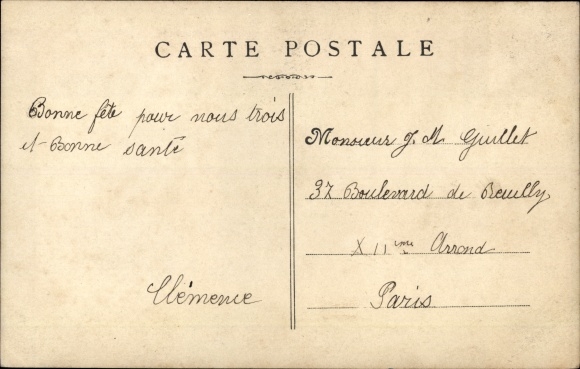 CARTE POSTALE
Bonne fête pour nous trois
et Bonne santé
Clémence
Monsieur J. M. Guillet
37 Boulevard de Reuilly
XIIème Arrond
Paris